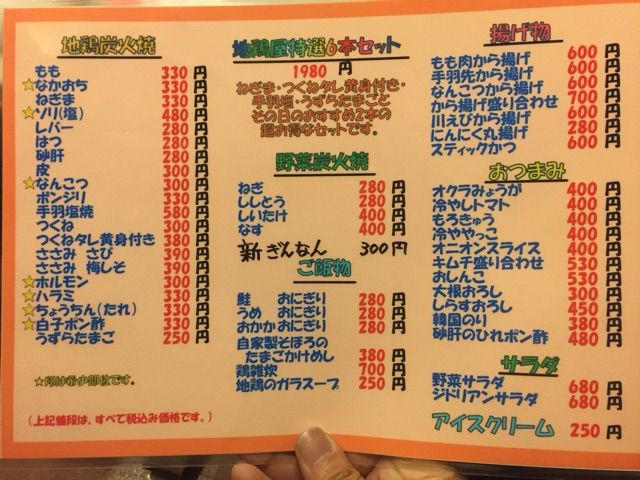 地鶏炭火焼
もも 330 円
☆なかおち 330 円
ねぎま 330 円
☆ソリ(塩) 480 円
レバー 280 円
はつ 280 円
砂肝 280 円
皮 300 円
☆なんこつ 300 円
ボンジリ 330 円
手羽塩焼 580 円
つくね 300 円
つくねタレ黄身付き 380 円
ささみ さび 390 円
ささみ 梅しそ 390 円
☆ホルモン 300 円
☆ハラミ 330 円
☆ちょうちん(たれ) 330 円
☆白子ポン酢 330 円
うずらたまご 250 円
☆印は希少部位です。
(上記値段は、すべて税込み価格です。)
地鶏屋特選6本セット
1980 円
ねぎま・つくねタレ黄身付き・
手羽塩・うずらたまごと
その日のおすすめ2本の
超お得なセットです。
野菜炭火焼
ねぎ 280 円
ししとう 280 円
しいたけ 400 円
なす 400 円
新ぎんなん 300円
ご飯物
鮭 おにぎり 280 円
うめ おにぎり 280 円
おかか おにぎり 280 円
自家製そぼろの
たまごかけめし 380 円
鶏雑炊 700 円
地鶏のガラスープ 250 円
揚げ物
もも肉から揚げ 600 円
手羽先から揚げ 600 円
なんこつから揚げ 600 円
から揚げ盛り合わせ 700 円
川えびから揚げ 600 円
にんにく丸揚げ 280 円
スティックかつ 600 円
おつまみ
オクラみょうが 400 円
冷やしトマト 400 円
もろきゅう 400 円
冷ややっこ 400 円
オニオンスライス 400 円
キムチ盛り合わせ 530 円
おしんこ 530 円
大根おろし 300 円
しらすおろし 450 円
韓国のり 380 円
砂肝のひれポン酢 480 円
サラダ
野菜サラダ 680 円
ジドリアンサラダ 680 円
アイスクリーム 250 円